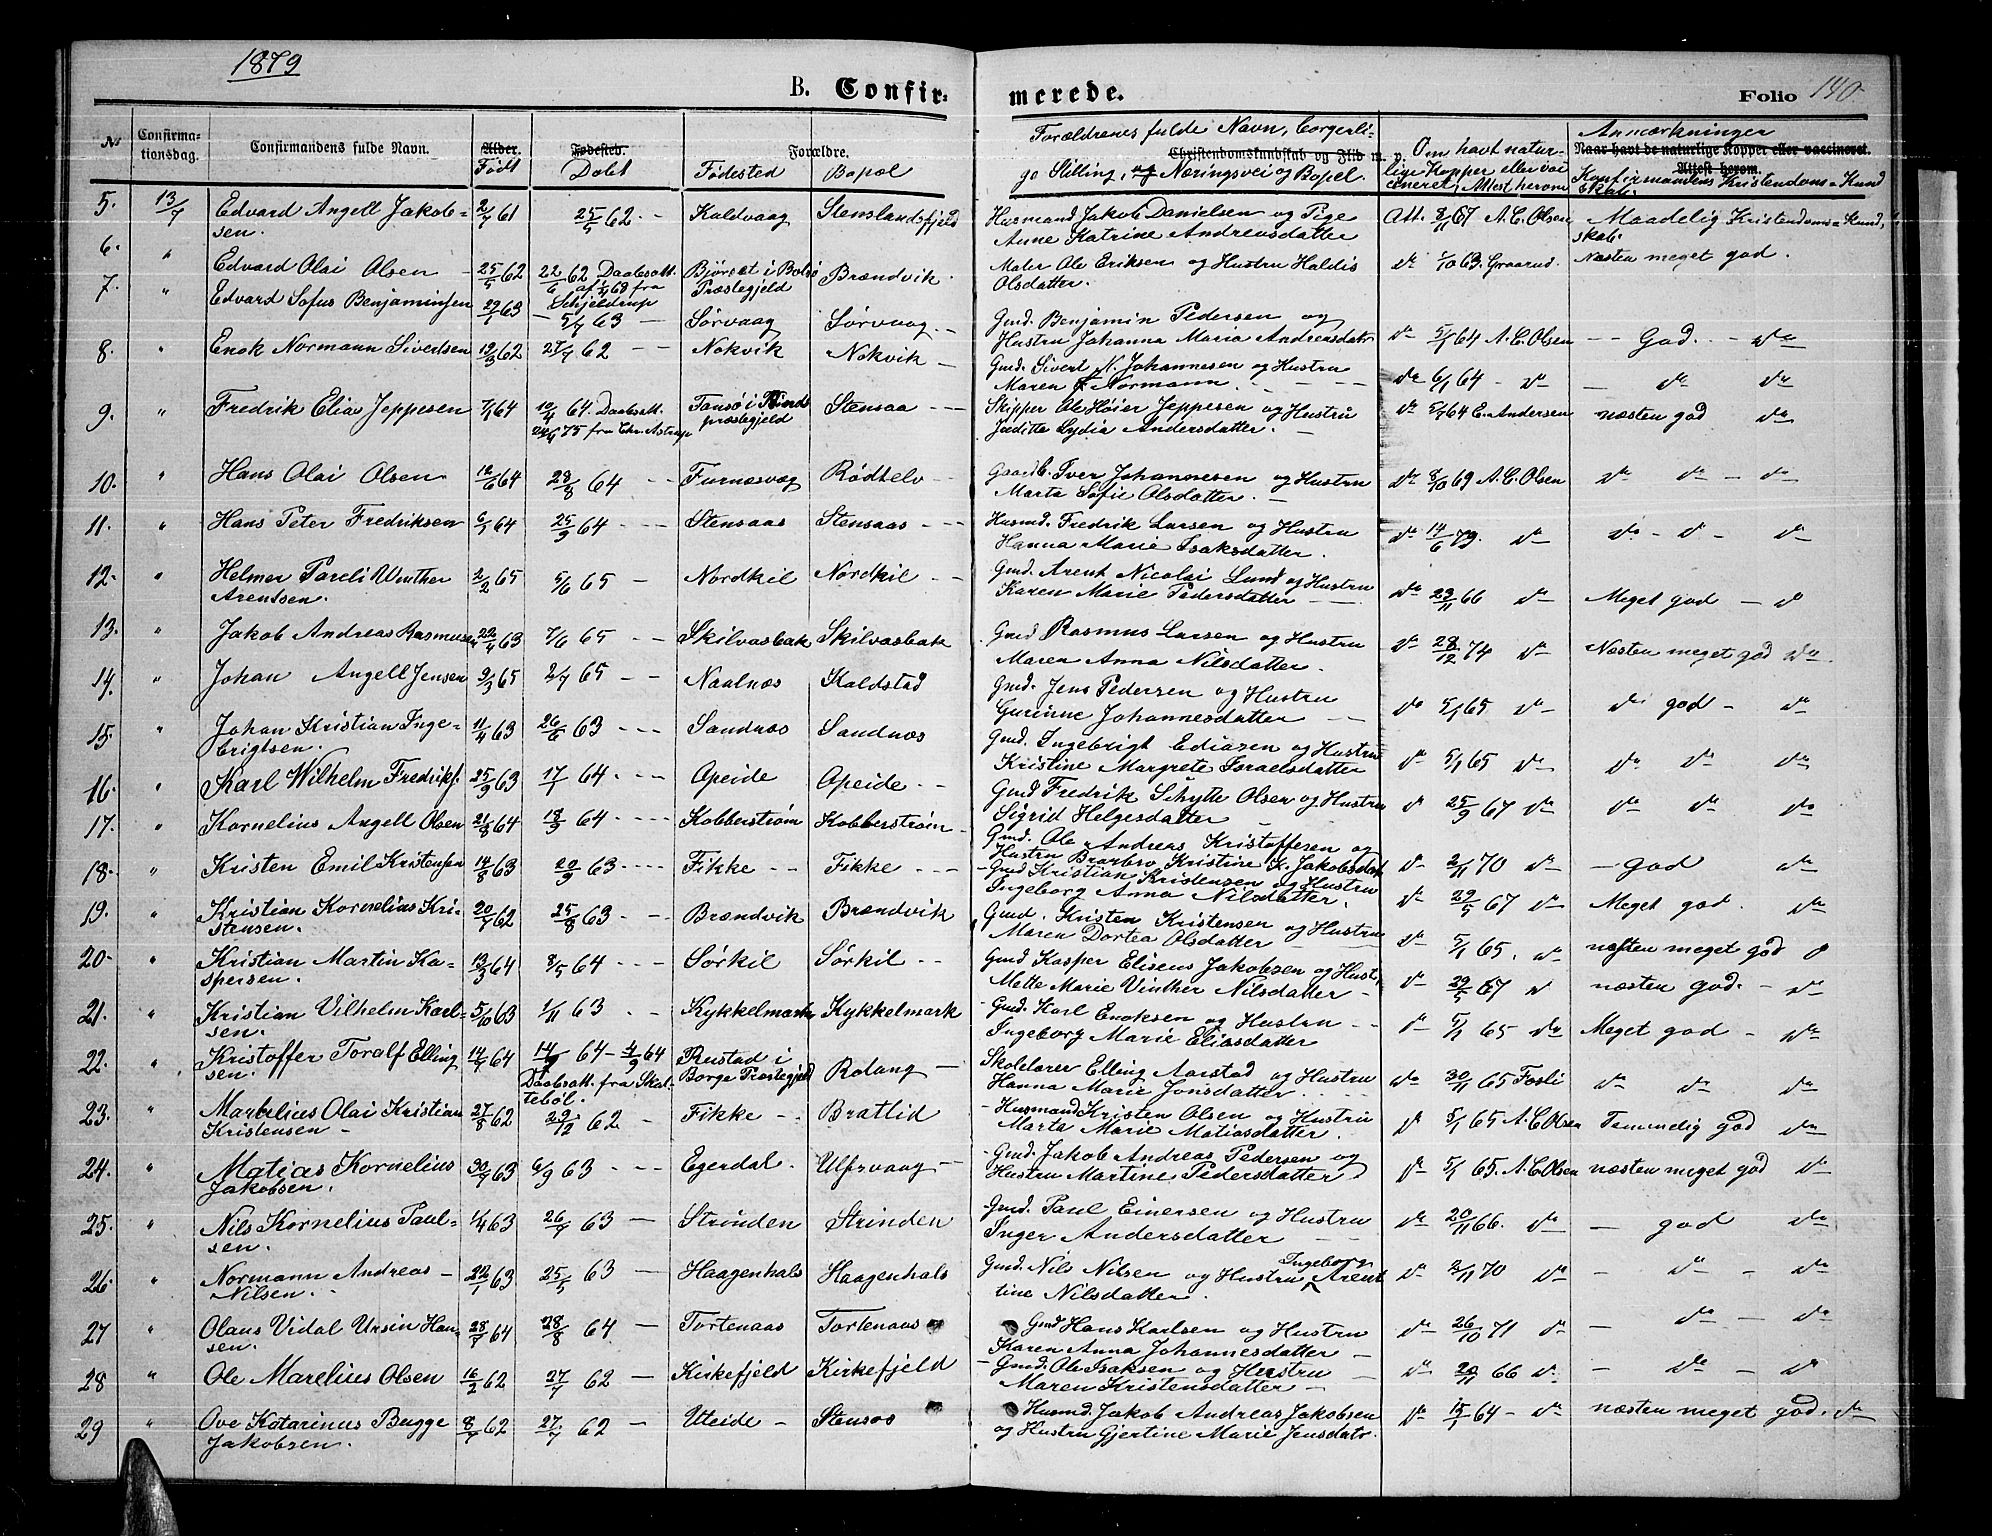 1879
B. Confirmerede.
Folio 140
No Confirmationsdag. Confirmandens fulde Navn. Alder. Født Fødested. Døbt Forældre. Fødested Bopæl
Forældrenes fulde Navn, borgerlige Stilling, og Næringsvei og Bopæl.
Christendomskundskab og Flid m. v.
Om havt naturlige Kopper eller vaccineret, Attest herom
Anmærkninger
Naar havt de naturlige Kopper eller vaccineret. Attest herom.
Konfirmandens Kristendoms=Kundskab.
5. 13/7 Edvard Angell Jakobsen. 2/7 61 25/5 62 - Kaldvaag Stenslandsfjeld Husmand Jakob Danielsen og Pige Anne Katrine Andreasdatter Att. 8/11 67 A. C. Olsen Maadelig Kristendoms=Kundskab.
6. " Edvard Olai Olsen 25/5 62 22/6 62 Daabsatt. af 1/4 68 fra Schjeldrup Bjørset i Bolsø Præstegjeld Brændvik Maler Ole Eriksen og Hustru Haldis Olsdatter. do 1/10 63. Graarud. Næsten meget god.
7. " Edvard Sofus Benjaminsen 22/1 63 - 5/7 63 - Sørvaag Sørvaag Gmd. Benjamin Pedersen og Hustru Johanna Maria Andreasdatr do 5/1 64 A. C. Olsen - God. - do
8. " Enok Normann Sivertsen 19/3 62 27/7 62 - Nokvik Nokvik Gmd. Sivert N. Johannesen og Hustru Maren F. Normann. do 6/1 64 - do - do do
9. " Fredrik Elia Jeppesen 7/1 64 10/4 64. Daabsatt. 24/4 75 fra Chr. Astrup præstegjeld Stensaa Skipper Ole Høier Jeppesen og Hustru Juditte Lydia Andersdatter. do 5/9 64 E. Andersen næsten god do
10. " Hans Olai Olsen 12/6 64 28/8 64 - Furnesvag Rødtelv Gaardb. Iver Johannesen og Hustru Marta Sofie Olsdatter. do 8/10 69 A. C. Olsen do do - do
11. " Hans Peter Fredriksen 6/1 64 25/9 64 - Stensaas Stensaas Husmd. Fredrik Larsen og Hustru Hanna Marie Isaksdatter. do 14/6 79. do do - do - do
12. " Helmer Pareli Winther Arentsen. 2/2 65 5/6 65 - Nordkil Nordkil Gmd. Arent Nicolai Lund og Hustru Karen Marie Pedersdatter do 23/11 66 do Meget god - do
13. " Jakob Andreas Rasmusen 22/4 63 7/6 65 - Skilvasbak Skilvasbak Gmd Rasmus Larsen og Hustru Maren Anna Nilsdatter. do 28/12 74 do Næsten meget god do
14. " Johan Angell Jensen 9/3 65 2/7 65 - Naalnæs Kaldstad Gmd. Jens Pedersen og Hustru Gurinne Johannesdatter do 5/1 65 do do god - do
15. " Johan Kristian Ingebrigtsen. 11/4 63 26/6 63 - Sandnæs Sandnæs Gmd. Ingebrigt Ediasen og Hustru Kristine Margrete Israelsdatter do 5/1 65 do do do do
16. " Karl Wilhelm Fredriks. 25/9 63 17/1 64. - Apeide Apeide Gmd Fredrik Schytte Olsen og Hustru Sigrid Helgesdatter do 25/9 67 do do do do
17. " Kornelius Angell Olsen 21/8 64 18/9 64 - Kobberstrøm Kobberstrøm Gmd. Ole Andreas Kristoffersen og Hustru Brarbro Kristine K. Jakobsdatr do 2/11 70 do - god do
18. " Kristen Emil Kristensen 14/8 63 20/9 63 - Fikke Fikke Gmd Kristian Kristensen og Hustru Ingeborg Anna Nilsdatter. do 29/5 67 do Meget god. do
19. " Kristian Kornelius Kristensen. 20/7 62 25/8 63 - Brændvik Brændvik Gmd. Kristen Kristensen og Hustru Maren Dortea Olsdatter do 5/1 65. do næsten meget god do
20. " Kristian Martin Kaspersen. 13/3 64 8/5 64 - Sørkil Sørkil Gmd Kasper Eliseus Jakobsen og Hust. Mette Marie Vinther Nilsdatter do 29/5 67 do næsten god. - do
21. " Kristian Vilhelm Karlsen. 5/10 63 1/11 63 - Kykkelmark Kykkelmark Gmd. Karl Enoksen og Hustru Ingeborg Marie Eliasdatter do 5/1 65 do Meget god - do
22. " Kristoffer Toralf Ellingsen. 14/7 64 14/9 64 - 4/9 64 Daabsatt. fra Skaltebøl. Rustad i Borge Præstegjeld Rotang Skolelærer Elling Aarstad og Hustru Hanna Marie Jonsdatter. do 30/11 65 Fosli do do do
23. " Marbelius Olai Kristian Kristensen 27/8 62 29/12 62 - Fikke Bratlid Husmand Kristen Olsen og Hustru Marta Marie Matiasdatter. do 5/1 65 A. C. Olsen Temmelig god do
24. " Matias Kornelius Jakobsen. 30/7 63 6/9 63 - Egerdal. Ulfsvaag Gmd. Jakob Andreas Pedersen og Hustru Martine Pedersdatter do 5/1 65. A. C. Olsen næsten meget god do
25. " Nils Kornelius Paulsen. 1/4 63 26/7 63 - Strinden Strinden Gmd. Paul Einersen og Hustru Inger Andersdatter do 20/11 66. do - god do
26. " Normann Andreas Nilsen. 22/1 63 25/5 63 - Haagenhals Haagenhals Gmd. Nils Nilsen og Hustru Ingeborg Arenttine Nilsdatter. do 2/11 70 do - do - do
27 " Olaus Vidal Ursin Hansen. 28/7 64 28/8 64 - Tortenaas Tortenaas Gmd Hans Karlsen og Hustru Karen Anna Johannesdatter do 26/10 71 do - do - do
28 " Ole Marelius Olsen 16/2 62 27/7 62 - Kirkefjeld Kirkefjeld Gmd. Ole Isaksen og Hustru Maren Kristensdatter do 20/11 66 do - do - do
29 " Ove Katarinus Bugge Jakobsen. 8/7 62 27/7 62 - Uteide Stensøs Husmd. Jakob Andreas Jakobsen og Hustru Gjertine Marie Jensdatr. do 15/7 64 - do næsten meget god. do